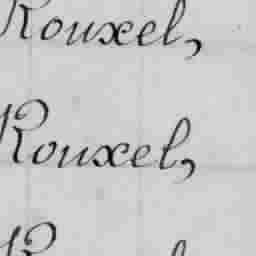 Rouxel,
Rouxel,